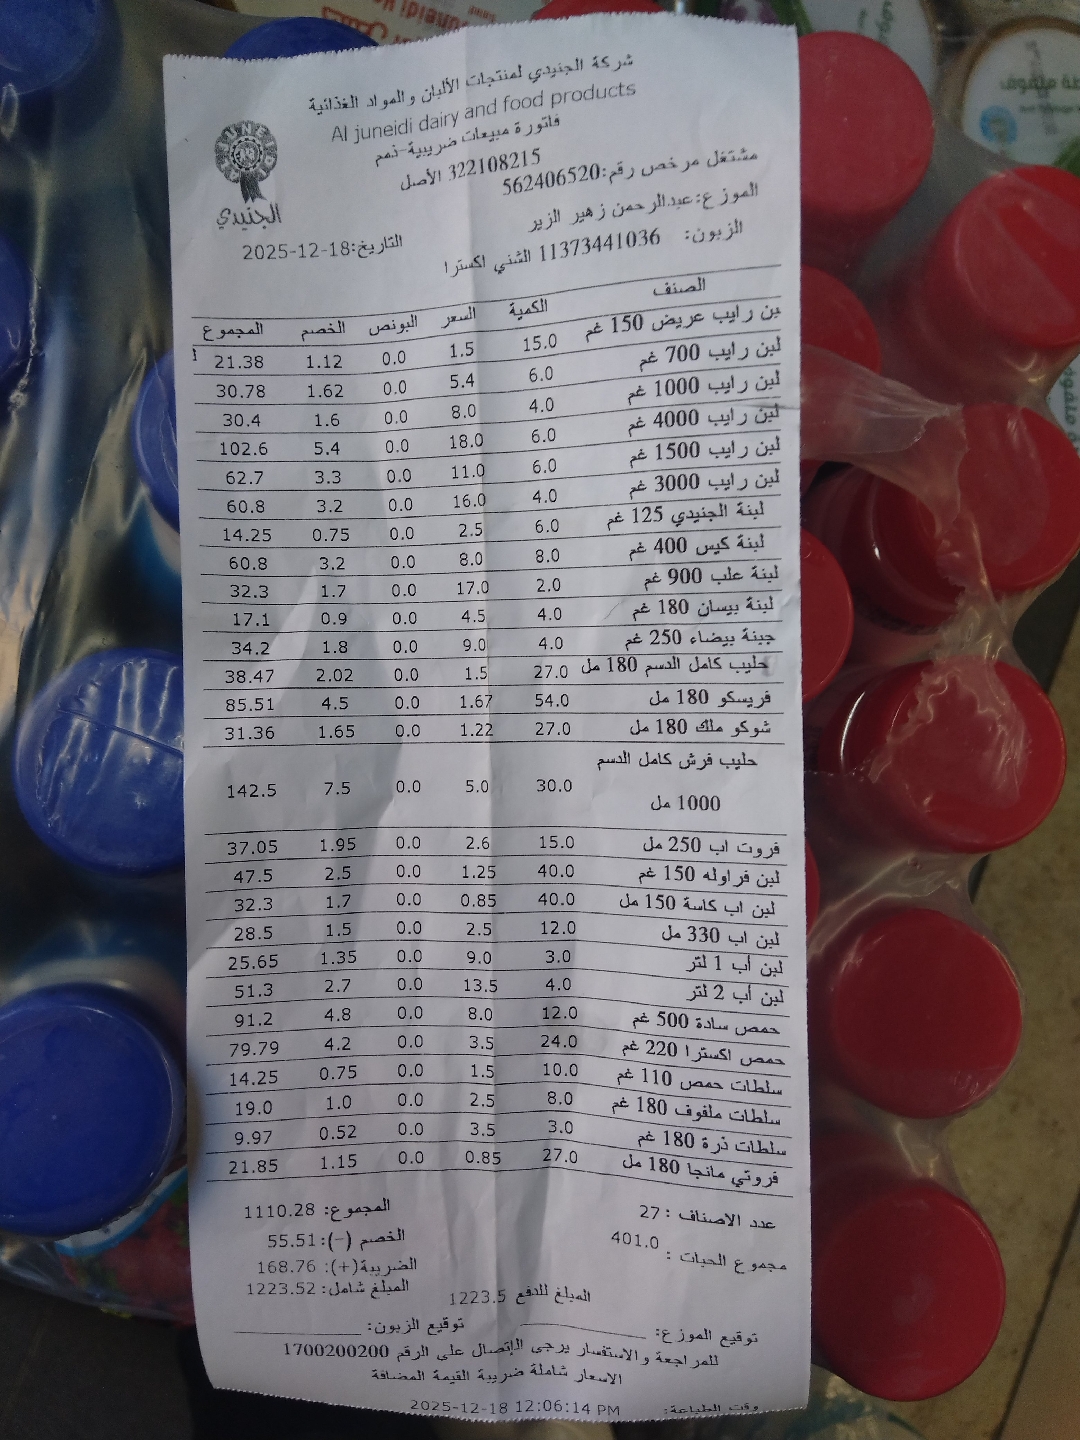 شركة الجنيدي لمنتجات الألبان والمواد الغذائية
Al juneidi dairy and food products
فاتورة مبيعات ضريبية-نمم
322108215 الأصل
مشتغل مرخص رقم:562406520
الموزع:عبدالرحمن زهير الزير
الزبون: 11373441036 الشني اكسترا
الجنيدي
التاريخ:2025-12-18
الصنف الكمية السعر البونص الخصم المجموع
بن رايب عريض 150 غم 15.0 1.5 0.0 1.12 21.38
لبن رايب 700 غم 6.0 5.4 0.0 1.62 30.78
لبن رايب 1000 غم 4.0 8.0 0.0 1.6 30.4
لبن رايب 4000 غم 6.0 18.0 0.0 5.4 102.6
لبن رايب 1500 غم 6.0 11.0 0.0 3.3 62.7
لبن رايب 3000 غم 4.0 16.0 0.0 3.2 60.8
لبنة الجنيدي 125 غم 6.0 2.5 0.0 0.75 14.25
لبنة كيس 400 غم 8.0 8.0 0.0 3.2 60.8
لبنة علب 900 غم 2.0 17.0 0.0 1.7 32.3
لبنة بيسان 180 غم 4.0 4.5 0.0 0.9 17.1
جبنة بيضاء 250 غم 4.0 9.0 0.0 1.8 34.2
حليب كامل الدسم 180 مل 27.0 1.5 0.0 2.02 38.47
فريسكو 180 مل 54.0 1.67 0.0 4.5 85.51
شوكو ملك 180 مل 27.0 1.22 0.0 1.65 31.36
حليب فرش كامل الدسم
1000 مل 30.0 5.0 0.0 7.5 142.5
فروت اب 250 مل 15.0 2.6 0.0 1.95 37.05
لبن فراوله 150 غم 40.0 1.25 0.0 2.5 47.5
لبن اب كاسة 150 مل 40.0 0.85 0.0 1.7 32.3
لبن اب 330 مل 12.0 2.5 0.0 1.5 28.5
لبن أب 1 لتر 3.0 9.0 0.0 1.35 25.65
لبن أب 2 لتر 4.0 13.5 0.0 2.7 51.3
حمص سادة 500 غم 12.0 8.0 0.0 4.8 91.2
حمص اكسترا 220 غم 24.0 3.5 0.0 4.2 79.79
سلطات حمص 110 غم 10.0 1.5 0.0 0.75 14.25
سلطات ملفوف 180 غم 8.0 2.5 0.0 1.0 19.0
سلطات ذرة 180 غم 3.0 3.5 0.0 0.52 9.97
فروتي مانجا 180 مل 27.0 0.85 0.0 1.15 21.85
عدد الاصناف : 27
مجموع الحبات : 401.0
المجموع: 1110.28
الخصم (-): 55.51
الضريبة(+): 168.76
المبلغ شامل: 1223.52
المبلغ للدفع 1223.5
توقيع الموزع: توقيع الزبون:
للمراجعة والاستفسار يرجى الإتصال على الرقم 1700200200
الاسعار شاملة ضريبة القيمة المضافة
وقت الطباعة: 2025-12-18 12:06:14 PM